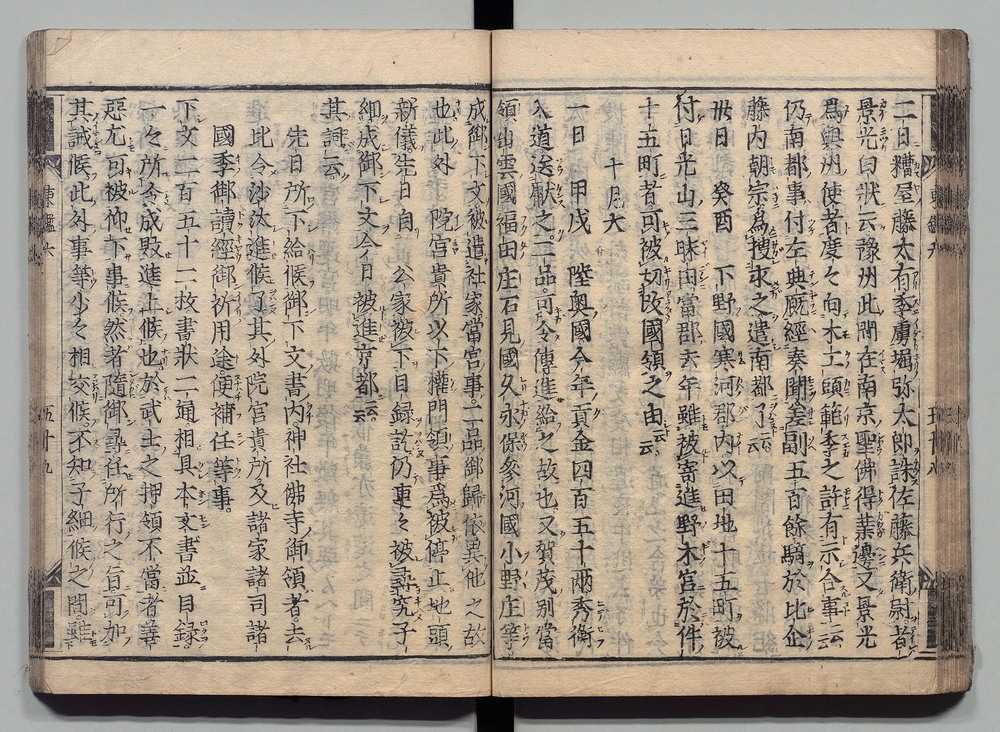 二日糟屋藤太有季虜堀弥太郎誅佐藤兵衛尉者
景光白状云豫州此間在南京聖佛得業邊又景光
為與州使者度々向木工頭範季之許有示合事云云
仍南都事付左典厩經奏聞差副五百餘騎於比企
藤内朝宗為捜求之遣南都了云云
卅日 癸酉 下野國寒河郡内以田地十五町被
付日光山三昧田當郡去年雖被寄進野木宮於件
十五町者可被切改國領之由云云
十月大
一日 甲戌 陸奥國今年貢金四百五十兩秀衡
入道送献之二品可令傳進給之故也又賀茂別當
領出雲國福田庄石見國久永保參河國小野庄等
成御下文被遣社家當宮事二品御歸依異他之故
也此外 院宮貴所以下權門領事為被停止地頭
新儀先日自 公家被下目録訖仍更々被尋究子
細成御下文今日被進京都云云
其詞云
先日所下給候御下文書内神社佛寺御領者去
比令沙汰進候了其外院宮貴所及諸家諸司諸
國季御讀經御祈用途便補任等事
下文二百五十二枚書状一通相具本文書並目録
一々所令成敗進上候也於武士之押領不當者等
惡尤可被仰下事候然者隨御尋任所行之旨可加
其誡候此外事等少々相交候不知子細候之間難
東鑑六
五十九
五十八